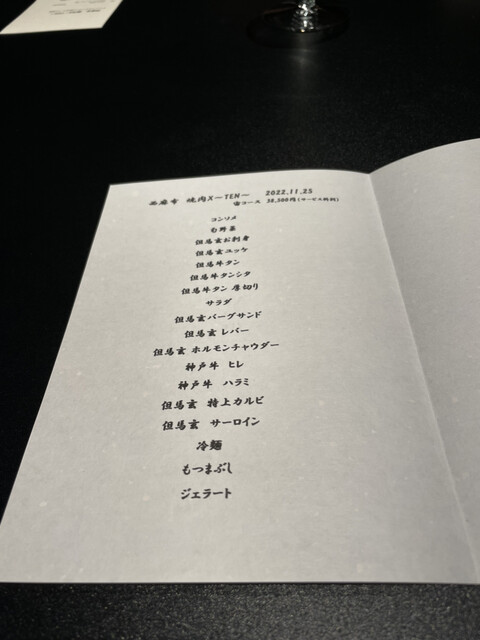 西麻布 焼肉X～TEN～ 2022.11.25
宙コース 38,500円(サービス料別)
コンソメ
旬野菜
但馬玄お刺身
但馬玄ユッケ
但馬牛タン
但馬牛タンシタ
但馬牛タン 厚切り
サラダ
但馬玄バーグサンド
但馬玄レバー
但馬玄 ホルモンチャウダー
神戸牛 ヒレ
神戸牛 ハラミ
但馬玄 特上カルビ
但馬玄 サーロイン
冷麺
もつまぶし
ジェラート